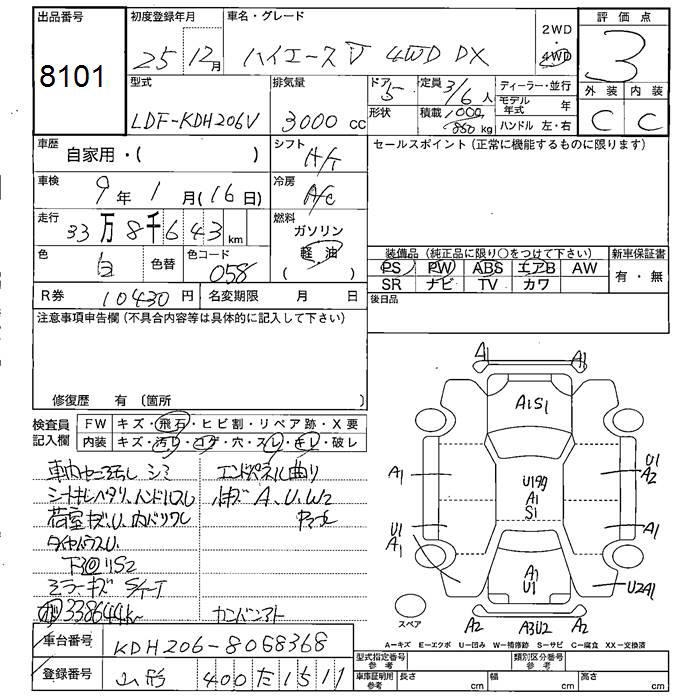 出品番号 初度登録年月 車名・グレード 2WD 評価点
8101 25 12月 ハイエースV 4WD DX 4WD 3
型式 排気量 ドア 5 定員 3/6人 ディーラー・並行 外装 内装
LDF-KDH206V 3000 cc 形状 積載 1000/850kg モデル年式 年 C C
ハンドル 左・右
車歴 自家用・( ) シフト A/T セールスポイント(正常に機能するものに限ります)
車検 9年1月(16日) 冷房 A/C
走行 33万8千643km 燃料 ガソリン
軽油
( )
色 白 色替 色コード 058 装備品(純正品に限り○をつけて下さい) 新車保証書
PS PW ABS エアB AW 有・無
SR ナビ TV カワ
R券 10430円 名変期限 月 日 後日品
注意事項申告欄(不具合内容等は具体的に記入して下さい)
修復歴 有(箇所
検査員記入欄 FW キズ・飛石・ヒビ割・リペア跡・X要
内装 キズ・汚レ・コゲ・穴・スレ・キレ・破レ
シミ エンドパネル曲り
シートキレヘタリ、ハンドルスレ A、U、W2
荷室キズ、U、内バリワレ
下回りS2
ミラーキズ
338644km カンバンアト
車台番号 KDH206-8068368
登録番号 山形 400 た 1511
A1 A1
A1S1
A1 U1 A2
U199
A1
S1
U1 A1 A1
A1
U1
U2A1
スペア A2 A3U2 A2
A=キズ E=エクボ U=凹み W=補修跡 S=サビ C=腐食 XX=交換済
型式指定番号 参考 類別区分番号 参考
車庫証明用 参考 長さ cm 幅 cm 高さ cm